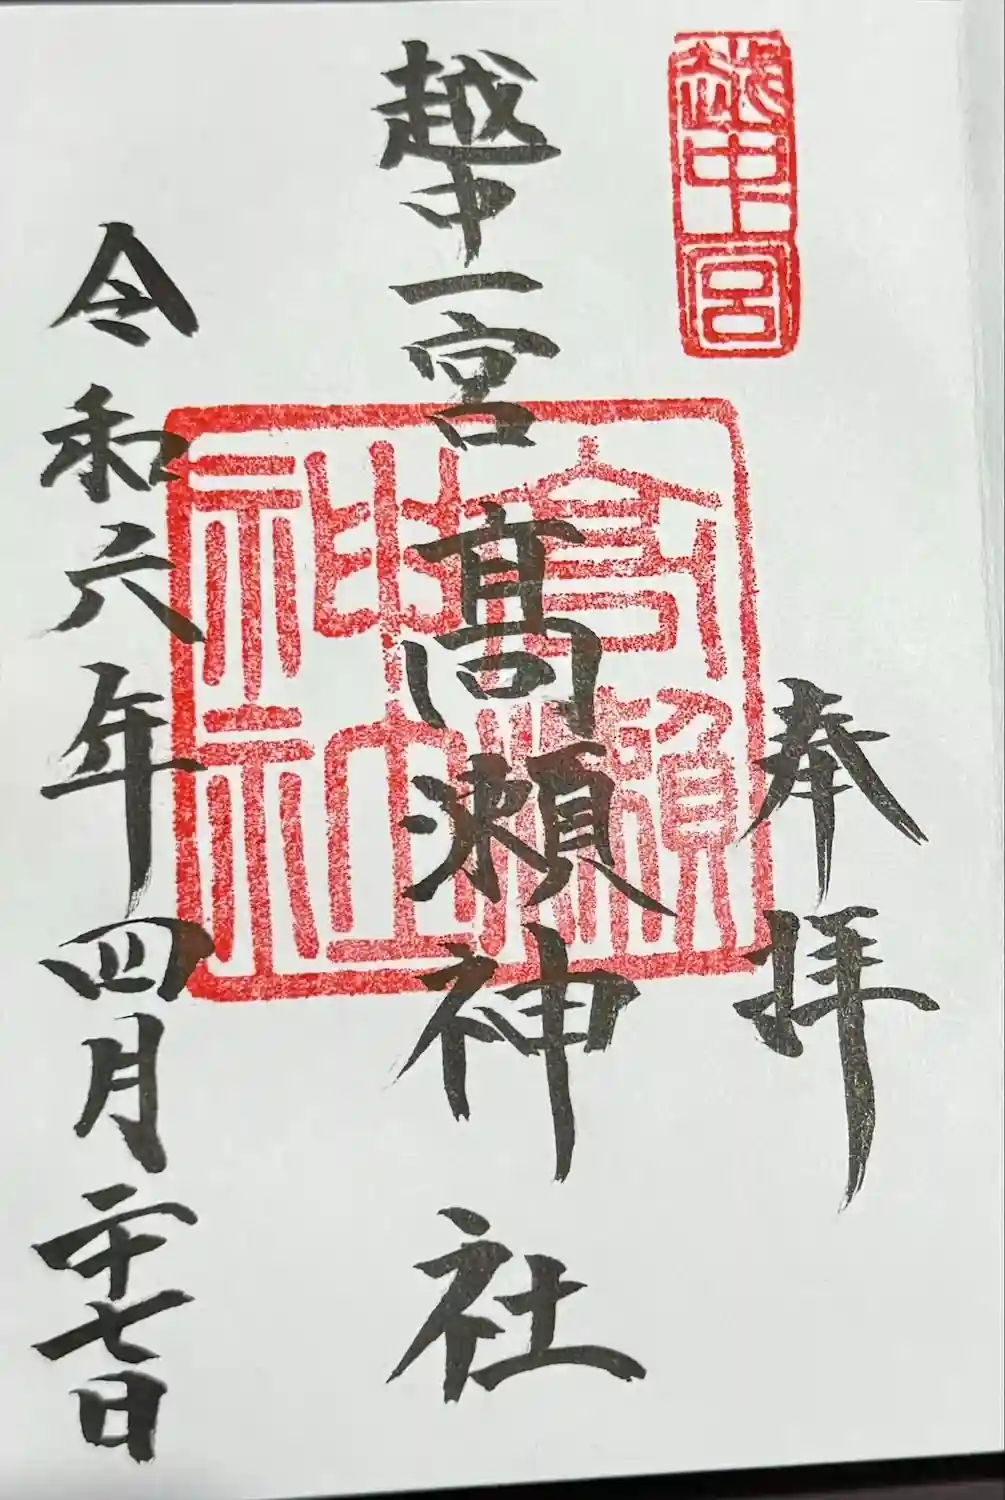 越中一宮
奉拝
越中一宮 高瀬神社
高瀬神社
令和六年四月二十七日